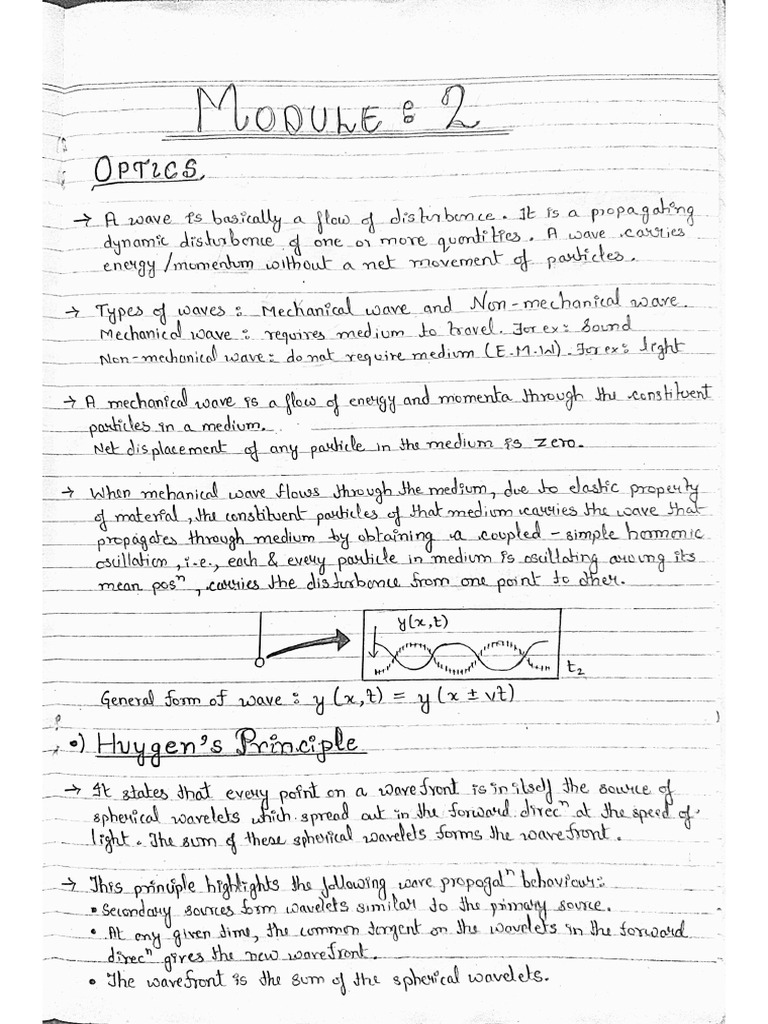 MODULE : 2
OPTICS
→ A wave is basically a flow of disturbence. It is a propagating
dynamic disturbence of one or more quantities. A wave carries
energy/momentum without a net movement of particles.
→ Types of waves : Mechanical wave and Non-mechanical wave.
Mechanical wave : requires medium to travel. For ex: Sound
Non-mechanical wave: do not require medium (E.M.W). For ex: light
→ A mechanical wave is a flow of energy and momenta through the constituent
particles in a medium.
Net displacement of any particle in the medium is zero.
→ When mehanical wave flows through the medium, due to elastic property
of material, the constituent particles of that medium carries the wave that
propogates through medium by obtaining a coupled-simple harmonic
oscillation, i.e., each & every particle in medium is oscillating aroung its
mean posⁿ, carries the disturbence from one point to other.
y(x,t)
t₂
General form of wave : y (x,t) = y (x ± vt)
•) Huygen's Principle
→ It states that every point on a wavefront is in itself the source of
spherical wavelets which spread out in the forward direcⁿ at the speed of
light. The sum of these spherical wavelets forms the wavefront.
→ This principle highlights the following wave propogatⁿ behaviour:
• Secondary sources form wavelets similar to the primary source.
• At any given time, the common tangent on the wavelets in the forward
direcⁿ gives the new wavefront.
• The wavefront is the sum of the spherical wavelets.